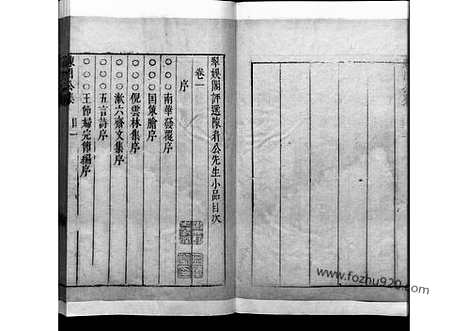 翠娛閣評選陳眉公先生小品目次
卷一
序
○○○南華發覆序
○○○国策膾序
○○○倪雲林集序
○○○漱六齋文集序
○○○五言詩序
○○○王節婦完節編序
目一
www.fozhu920.com